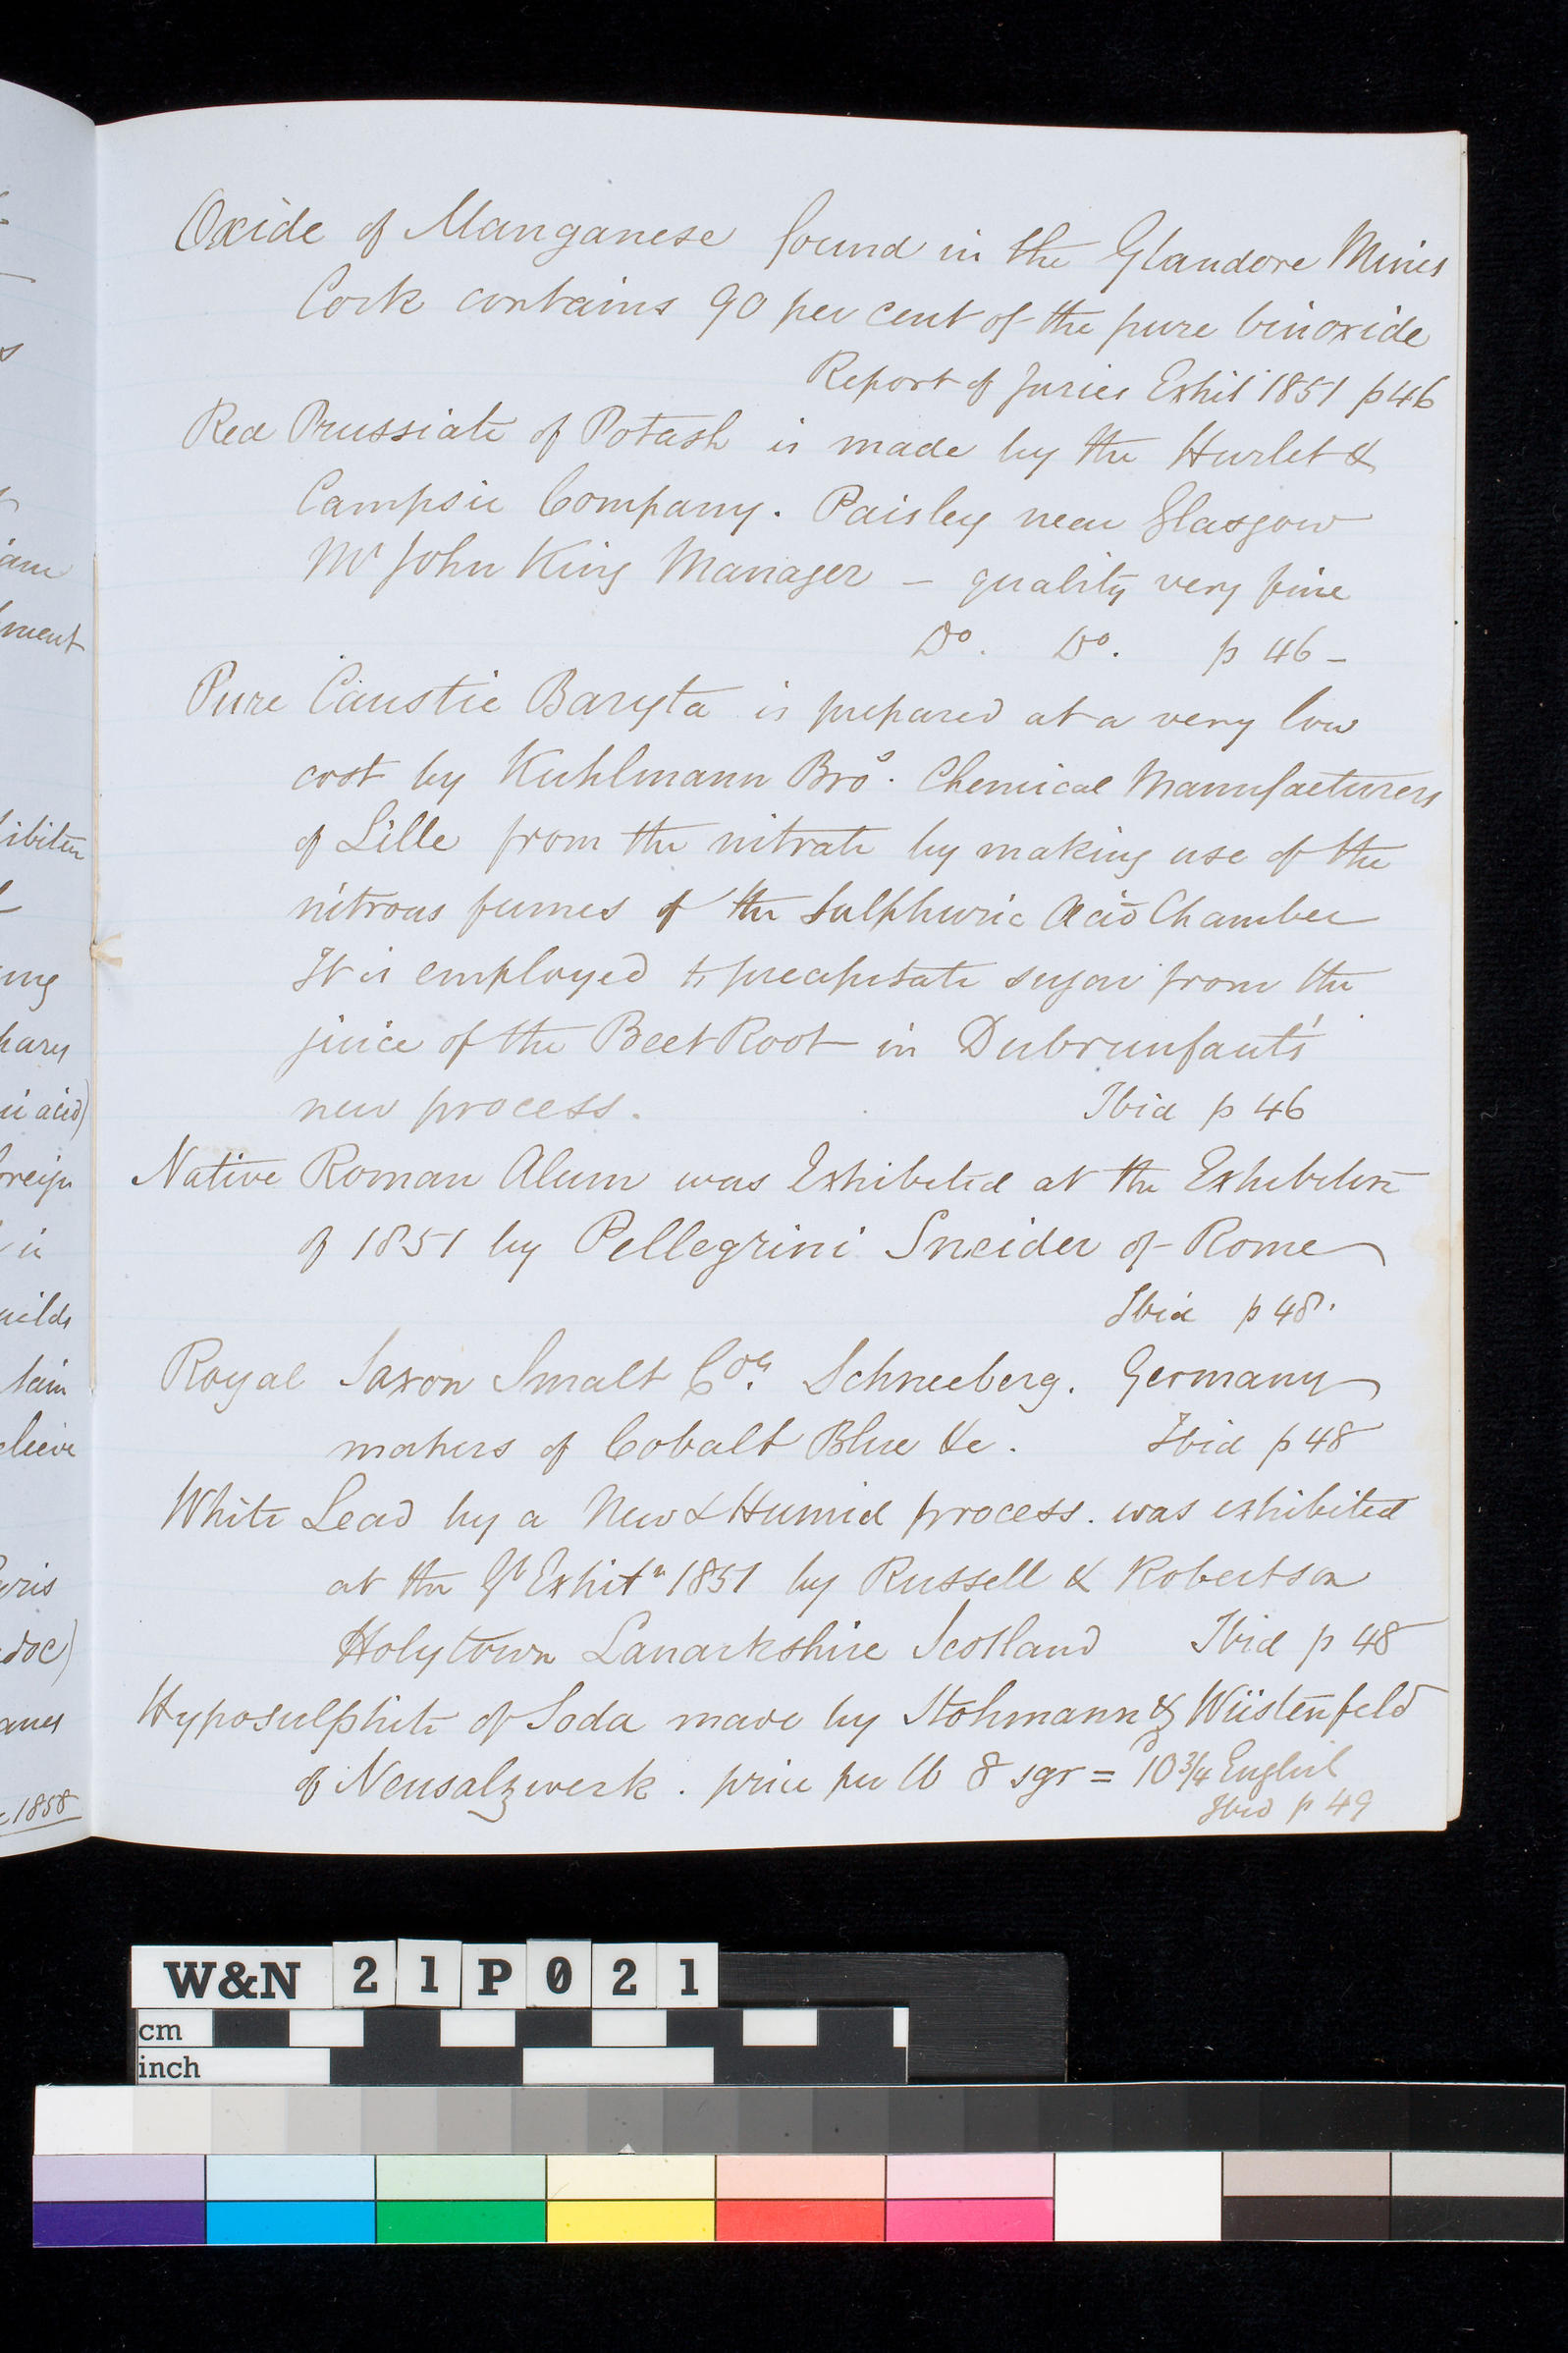 Oxide of Manganese found in the Glandore Mines
Cork contains 90 per cent of the pure binoxide
Report of Juries Exhib 1851 p46
Red Prussiate of Potash is made by the Hurlet &
Campsie Company. Paisley near Glasgow
Mr John King Manager – quality very fine
Do. Do. p 46 –
Pure Caustic Baryta is prepared at a very low
cost by Kuhlmann Bros. Chemical Manufacturers
of Lille from the nitrate by making use of the
nitrous fumes of the Sulphuric Acid Chamber
It is employed to precipitate sugar from the
juice of the Beet Root in Dubrunfaut's
new process. Ibid p 46
Native Roman Alum was Exhibited at the Exhibition
of 1851 by Pellegrini Sneider of Rome
Ibid p 48.
Royal Saxon Smalt Coy. Schneeberg. Germany
makers of Cobalt Blue &c. Ibid p 48
White Lead by a New & Humid process. was exhibited
at the Gt Exhibn 1851 by Russell & Robertson
Holytown Lanarkshire Scotland Ibid p 48
Hyposulphite of Soda made by Stohmann & Wüstenfeld
of Neusalzwerk. price per lb 8 sgr = 10 3/4 English
Ibid p 49
am
ment
ing
acid)
ields
tain
elieve
1858
W&N 21P021
cm
inch